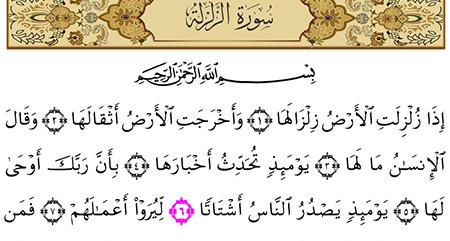 سُورَةُ الزَّلْزَلَةِ
بِسْمِ اللَّهِ الرَّحْمَٰنِ الرَّحِيمِ
إِذَا زُلْزِلَتِ ٱلْأَرْضُ زِلْزَالَهَا ﴿١﴾ وَأَخْرَجَتِ ٱلْأَرْضُ أَثْقَالَهَا ﴿٢﴾ وَقَالَ
ٱلْإِنسَٰنُ مَا لَهَا ﴿٣﴾ يَوْمَئِذٍ تُحَدِّثُ أَخْبَارَهَا ﴿٤﴾ بِأَنَّ رَبَّكَ أَوْحَىٰ
لَهَا ﴿٥﴾ يَوْمَئِذٍ يَصْدُرُ ٱلنَّاسُ أَشْتَاتًا ﴿٦﴾ لِّيُرَوْا۟ أَعْمَٰلَهُمْ ﴿٧﴾ فَمَن